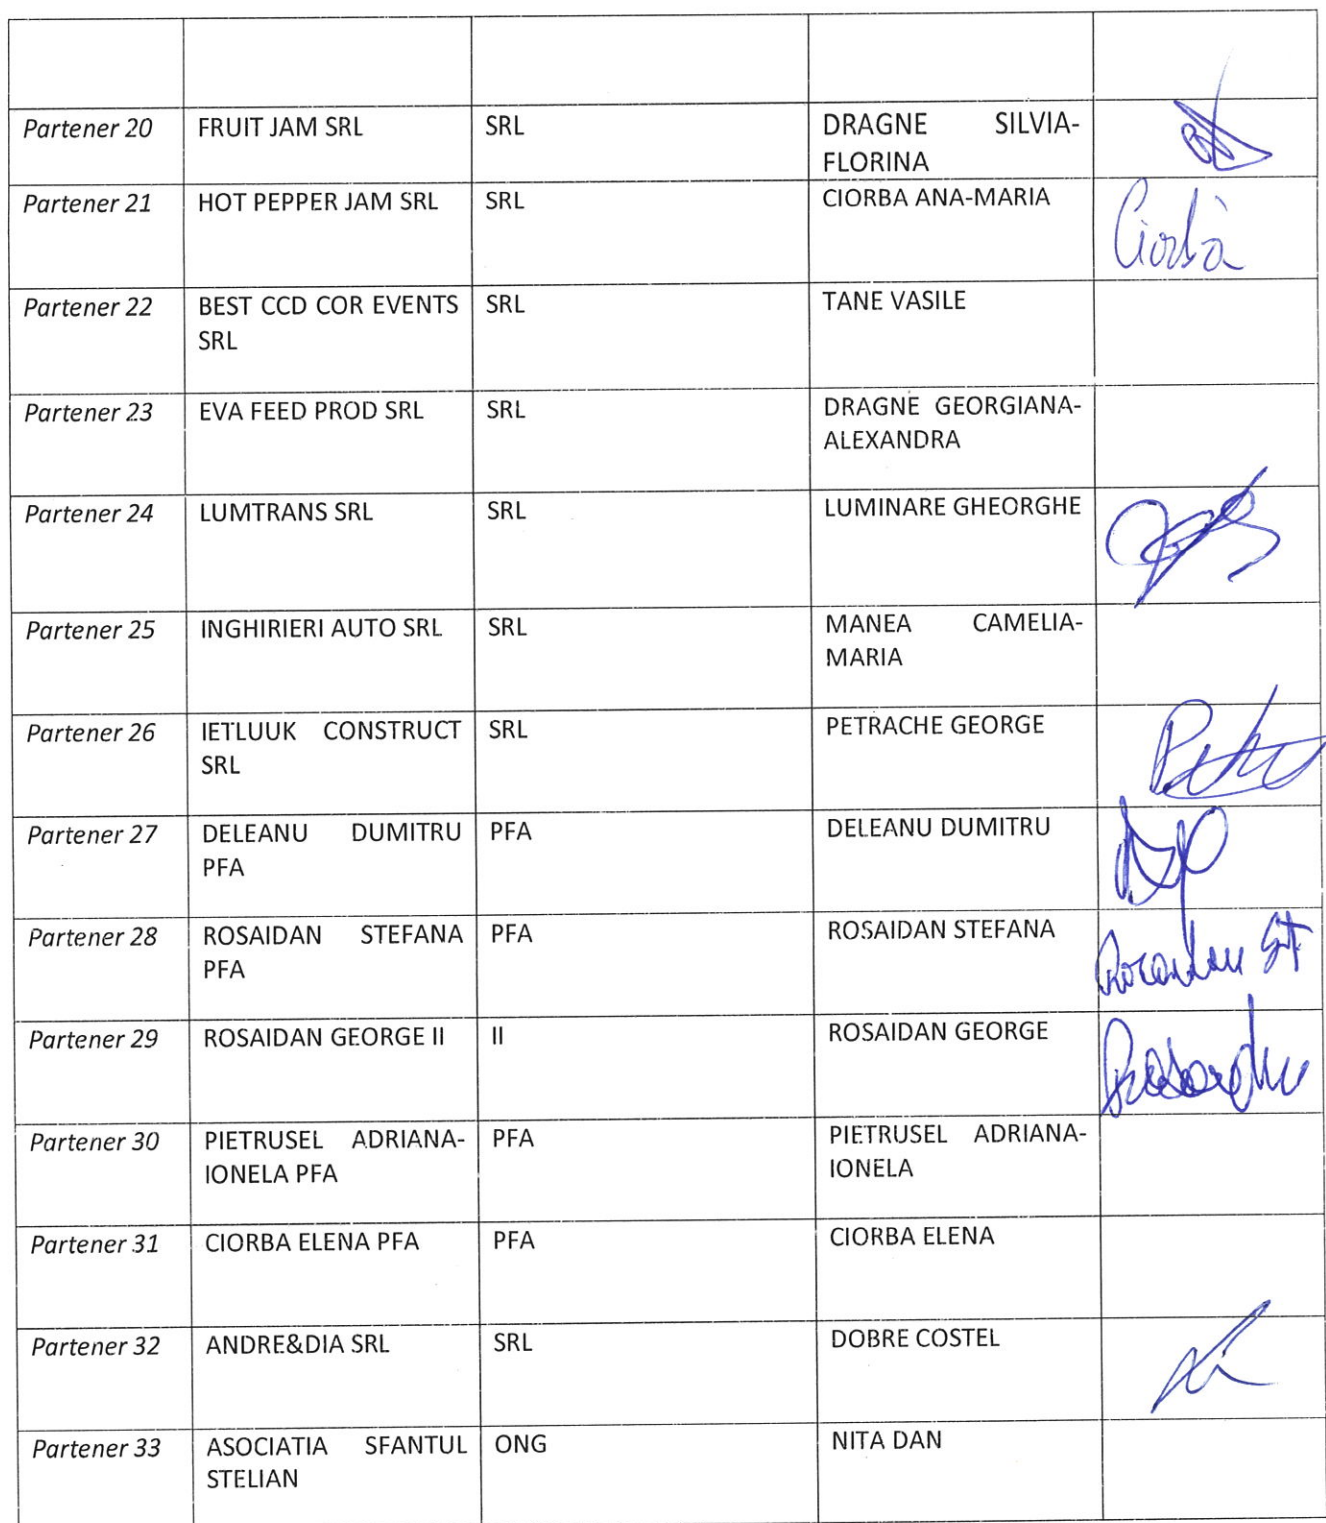 Partener 20 FRUIT JAM SRL SRL DRAGNE SILVIA-
FLORINA
Partener 21 HOT PEPPER JAM SRL SRL CIORBA ANA-MARIA Ciorbă
Partener 22 BEST CCD COR EVENTS SRL TANE VASILE
SRL
Partener 23 EVA FEED PROD SRL SRL DRAGNE GEORGIANA-
ALEXANDRA
Partener 24 LUMTRANS SRL SRL LUMINARE GHEORGHE
Partener 25 INGHIRIERI AUTO SRL SRL MANEA CAMELIA-
MARIA
Partener 26 IETLUUK CONSTRUCT SRL PETRACHE GEORGE
SRL
Partener 27 DELEANU DUMITRU PFA DELEANU DUMITRU
PFA
Partener 28 ROSAIDAN STEFANA PFA ROSAIDAN STEFANA
PFA
Partener 29 ROSAIDAN GEORGE II II ROSAIDAN GEORGE
Partener 30 PIETRUSEL ADRIANA- PFA PIETRUSEL ADRIANA-
IONELA PFA IONELA
Partener 31 CIORBA ELENA PFA PFA CIORBA ELENA
Partener 32 ANDRE&DIA SRL SRL DOBRE COSTEL
Partener 33 ASOCIATIA SFANTUL ONG NITA DAN
STELIAN